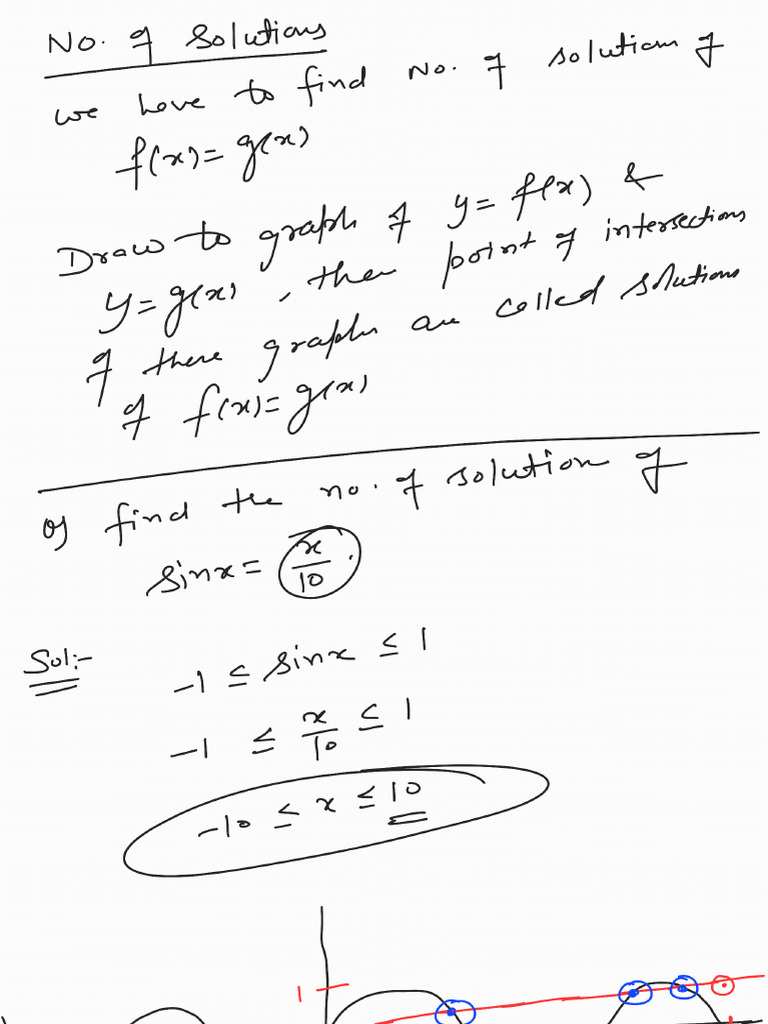 No. of Solutions
we have to find No. of solution of
f(x) = g(x)
Draw to graph of y = f(x) &
y = g(x), then point of intersections
of these graphs are called solutions
of f(x) = g(x)
Q find the no. of solution of
sinx = x/10.
Sol:-
-1 ≤ sinx ≤ 1
-1 ≤ x/10 ≤ 1
-10 ≤ x ≤ 10
1